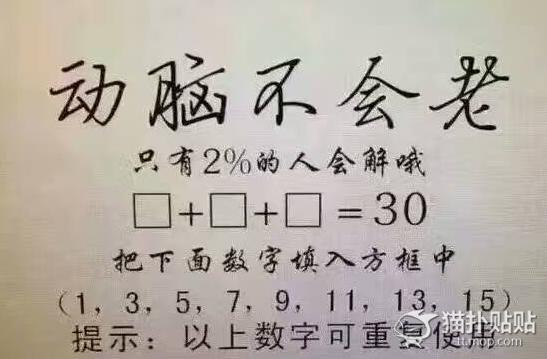 动脑不会老
只有2%的人会解哦
□+□+□=30
把下面数字填入方框中
(1, 3, 5, 7, 9, 11, 13, 15)
提示：以上数字可重复使用
猫扑贴贴
tt.mop.com